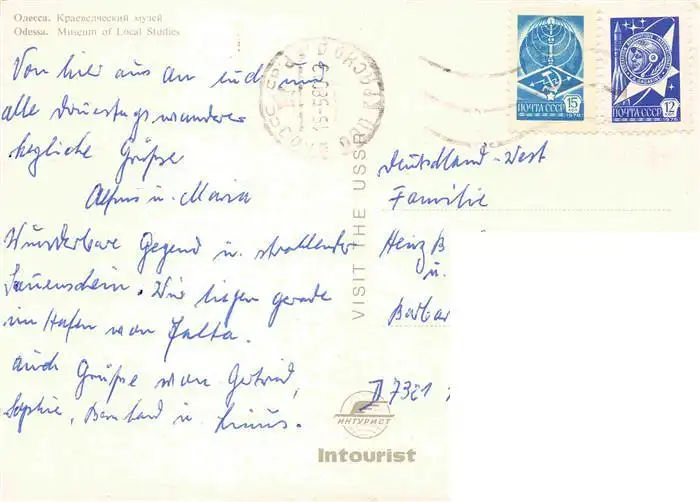 Одесса. Краеведческий музей
Odessa. Museum of Local Studies
Von hier aus an euch und
alle Dienstagswanderer
herzliche Grüße
Alfons u. Maria
Wunderbare Gegend u. strahlender
Sonnenschein. Wir liegen gerade
im Hafen von Jalta.
Auch Grüße von Gertrud,
Sophie, Bernhard u. Linus.
VISIT THE USSR
ПОЧТА СССР 15
1976
ПОЧТА СССР 12
1976
Deutschland-West
Familie
Heinz B
u.
Barbar
D 7321
ИНТУРИСТ
Intourist